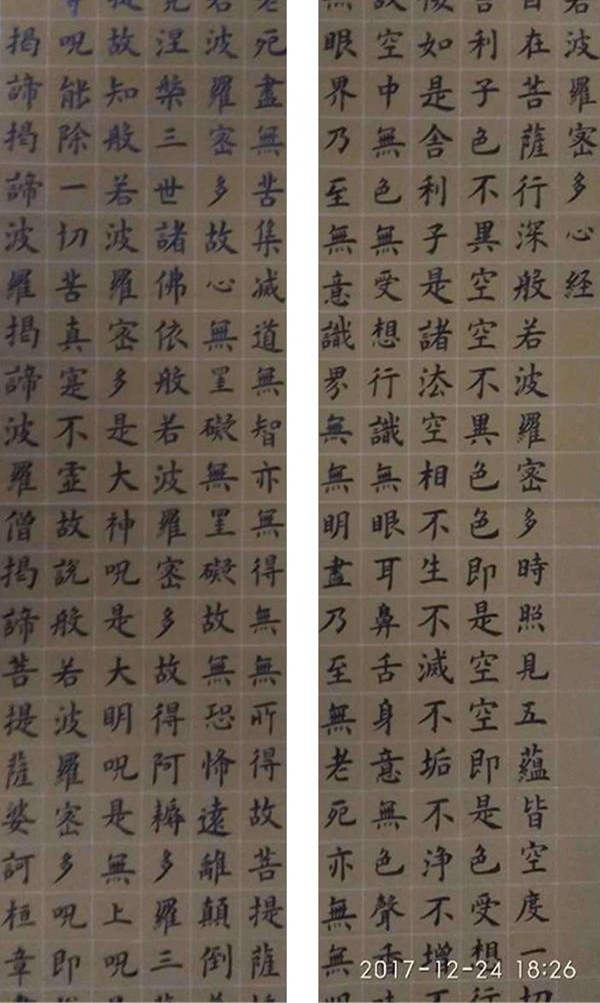 若波羅密多心経
自在菩薩行深般若波羅密多時照見五蘊皆空度一切
利子色不異空空不異色色即是空空即是色受相行
復如是舎利子是諸法空相不生不滅不垢不浄不增不
故空中無色無受想行識無眼耳鼻舌身意無色聲香
無眼界乃至無意識界無無明盡乃至無老死亦無無明
老死盡無苦集减道無智亦無得無無所得故菩提薩
若波羅密多故心無罣礙無罣礙故無恐怖遠離顛倒
涅槃三世諸佛依般若波羅密多故得阿耨多羅三
提故知般若波羅密多是大神呪是大明呪是無上呪
呪能除一切苦真寔不霊故説般若波羅密多呪即
揭諦揭諦波羅揭諦波羅僧揭諦菩提薩婆訶桓章
2017-12-24 18:26